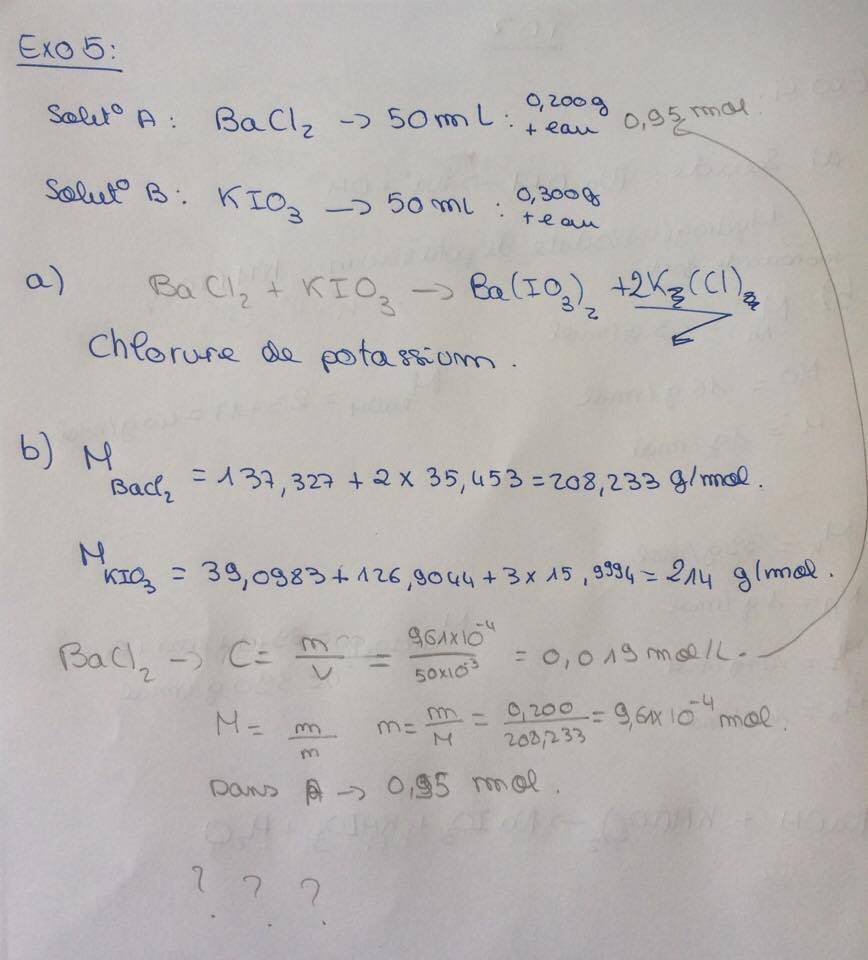 Exo 5:
Solut° A: BaCl2 -> 50 mL: 0,200g + eau 0,95 mol.
Solut° B: KIO3 -> 50 mL: 0,300g + eau
a) BaCl2 + KIO3 -> Ba(IO3)2 + 2K(Cl)
Chlorure de potassium.
b) M BaCl2 = 137,327 + 2 x 35,453 = 208,233 g/mol.
M KIO3 = 39,0983 + 126,9044 + 3 x 15,9994 = 214 g/mol.
BaCl2 -> C = n/V = 9,61x10^-4 / 50x10^-3 = 0,019 mol/L.
M = m/n n = m/M = 0,200/208,233 = 9,61x10^-4 mol.
Dans A -> 0,95 mol.
? ? ?